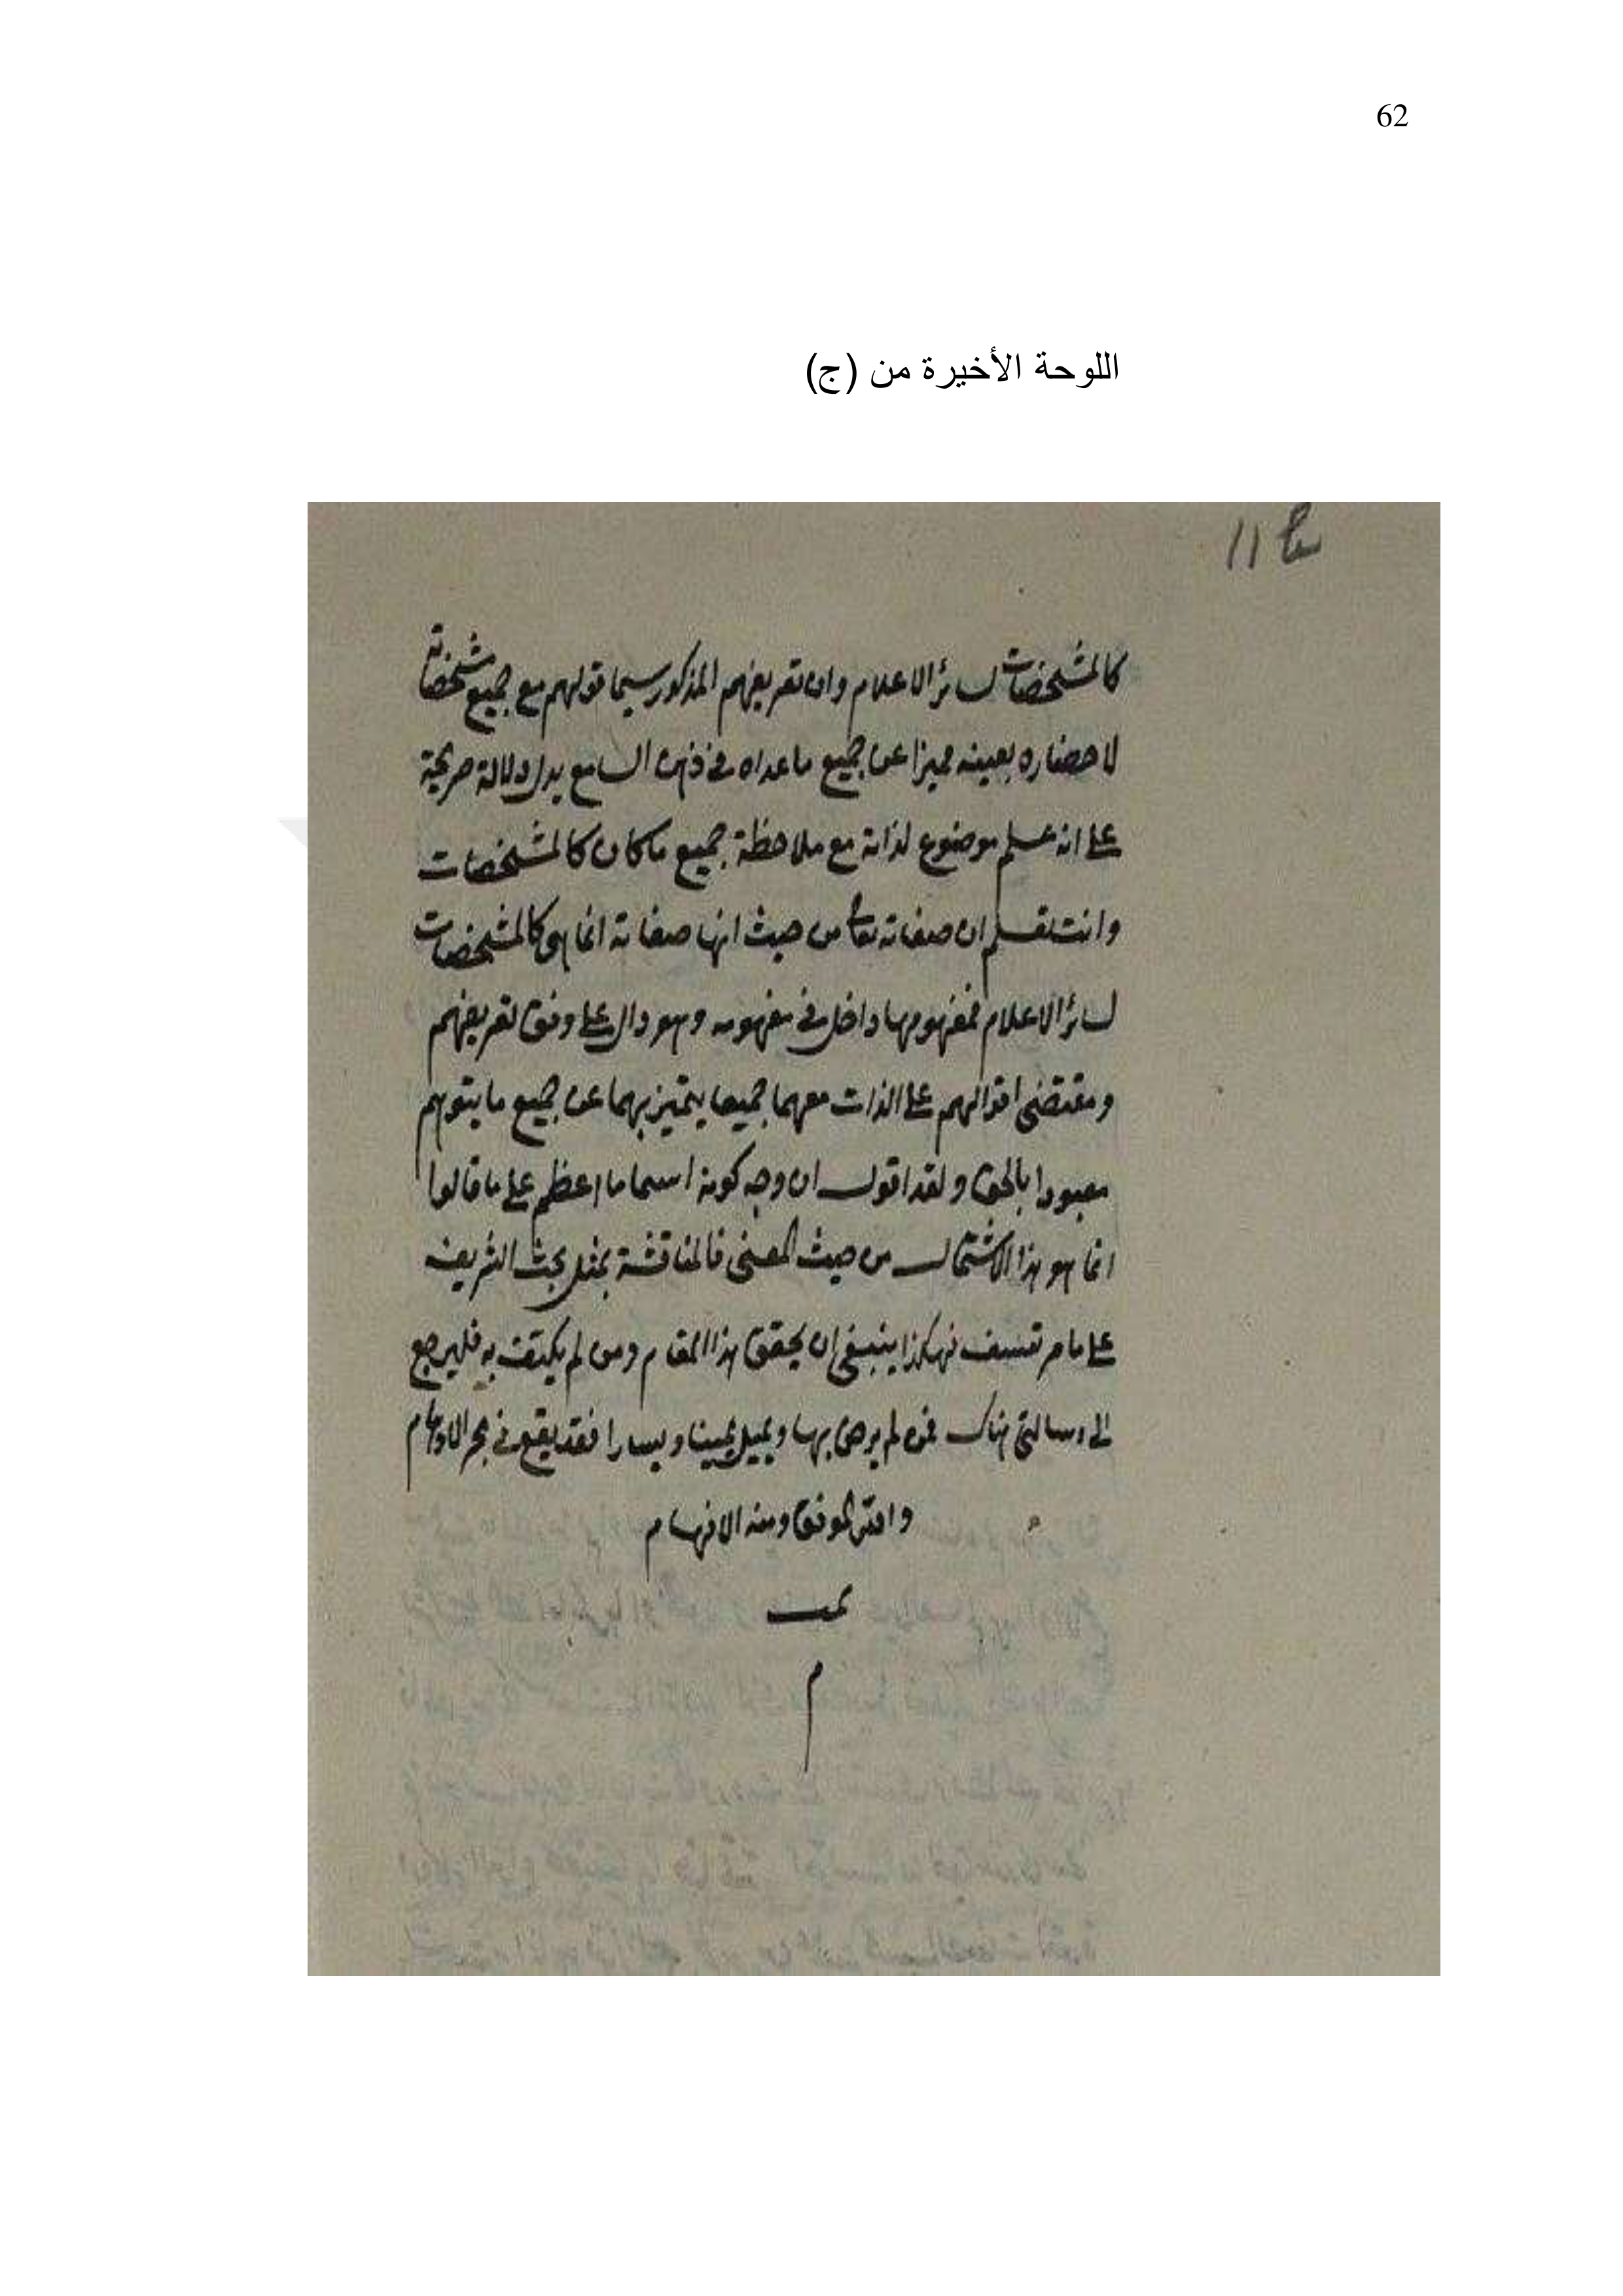 62
اللوحة الأخيرة من (ج)
11
كالمشخصات لسائر الاعلام وان تعريفهم المذكور سيما قولهم مع جميع مشخصاته
لاحضاره بعينه مميزا عن جميع ما عداه في ذهن السامع يدل دلالة صريحة
على انه علم موضوع لذاته مع ملاحظة جميع ما كان كالمشخصات
وانت تعلم ان صفاته تعا من حيث انها صفاته انما هى كالمشخصات
لسائر الاعلام فمفهومها داخل في مفهومه وهو دال على وفق تعريفهم
ومقتضى اقوالهم على الذات معهما جميعا يتميز بهما عن جميع ما يتوهم
معبودا بالحق ولقد اقول ان وجه كونه اسما اعظم على ما قالوا
انما هو هذا الاشتمال من حيث المعنى فالمناقشة بمثل بحث الشريف
على ما مر تعسف فهكذا ينبغى ان يحقق هذا المقام ومن لم يكتف به فليرجع
الى رسالتى هناك فمن لم يرض بها ويميل يمينا ويسارا فقد يقع في بحر الاوهام
والله الموفق ومنه الافهام
تمت
م